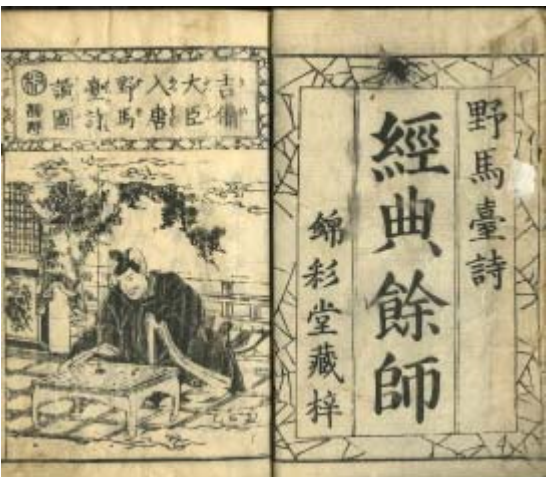 野馬臺詩
經典餘師
錦彩堂藏梓
吉備
大臣
入唐
野馬
臺詩
讀圖